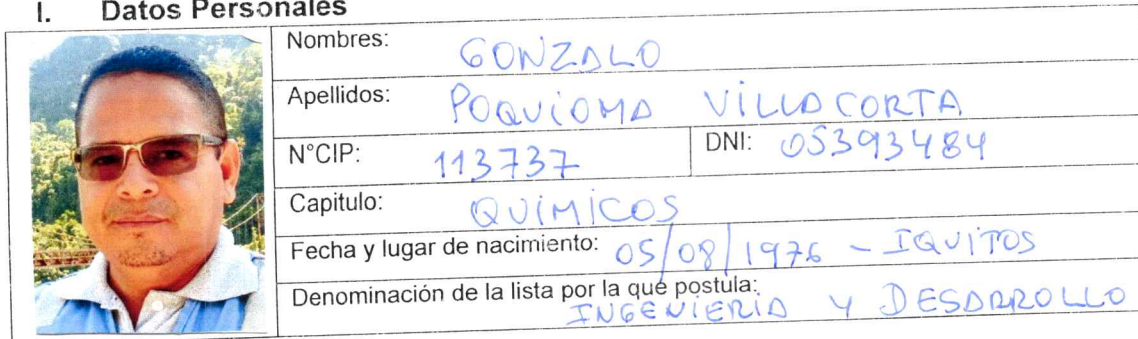 I. Datos Personales
Nombres: GONZALO
Apellidos: POQUIOMA VILLACORTA
N°CIP: 113737 DNI: 05393484
Capitulo: QUIMICOS
Fecha y lugar de nacimiento: 05/08/1976 - IQUITOS
Denominación de la lista por la que postula: INGENIERIA Y DESARROLLO